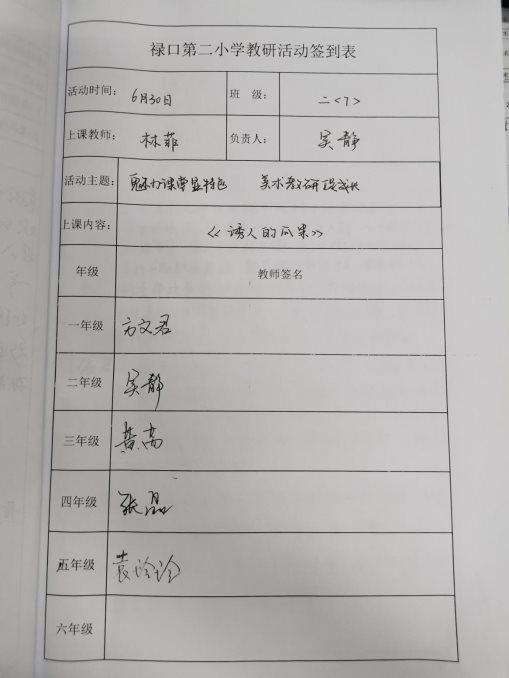 禄口第二小学教研活动签到表
活动时间： 6月30日 班 级： 二<7>
上课教师： 林菲 负责人： 吴静
活动主题： 魅力课堂显特色 美术教研促成长
上课内容： 《诱人的瓜果》
年级 教师签名
一年级 方文君
二年级 吴静
三年级 黄高
四年级 张晶
五年级 袁玲玲
六年级